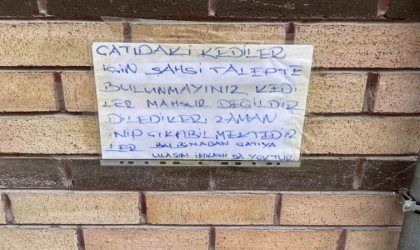 ÇATIDAKİ KEDİLER
İÇİN ŞAHSİ TALEPTE
BULUNMAYINIZ KEDİ
LER MAHSUR DEĞİLDİR
DİLEDİKERİ ZAMAN
İNİP ÇIKABİLMEKTEDİR
LER BU BİNADAN ÇATIYA
ULAŞIM İMKANI DA YOKTUR